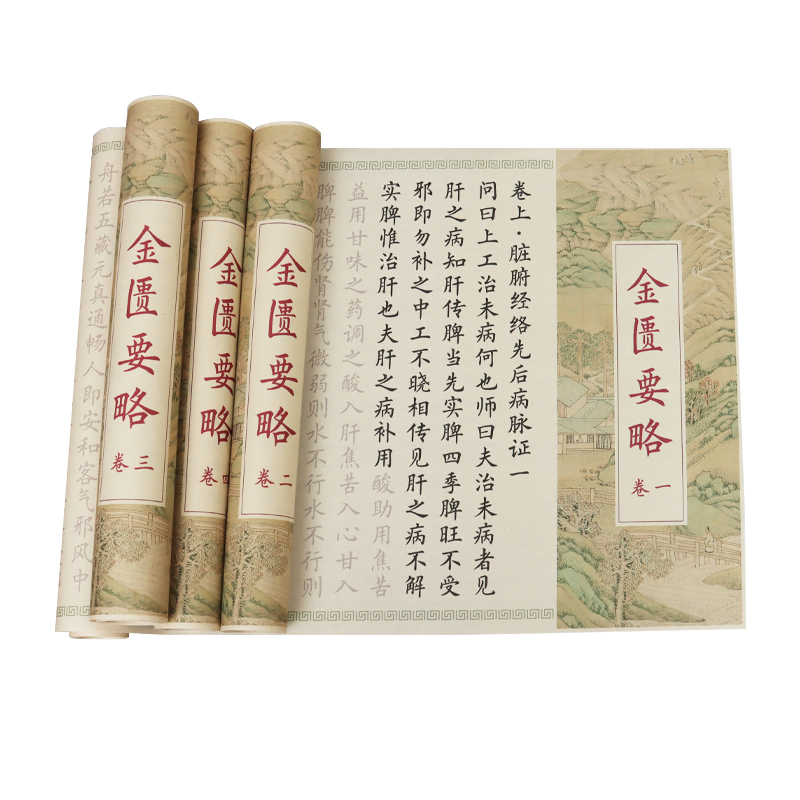 金匮要略
卷一
卷上·脏腑经络先后病脉证一
问曰上工治未病何也师曰夫治未病者见
肝之病知肝传脾当先实脾四季脾旺不受
邪即勿补之中工不晓相传见肝之病不解
实脾惟治肝也夫肝之病补用酸助用焦苦
益用甘味之药调之酸入肝焦苦入心甘入
脾脾能伤肾肾气微弱则水不行水不行则
金匮要略
卷二
金匮要略
卷四
金匮要略
卷三
舟若五藏元真通畅人即安和客气邪风中